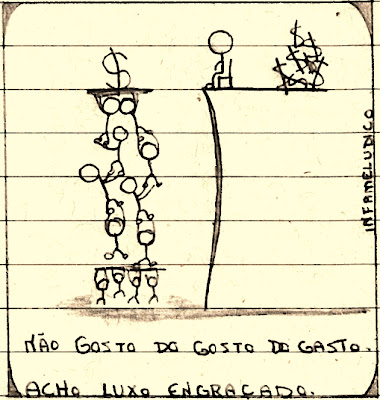 $
$ $ $ $ $
INFAMELUDICO
NÃO GOSTO DO GOSTO DO GASTO.
ACHO LUXO ENGRAÇADO.